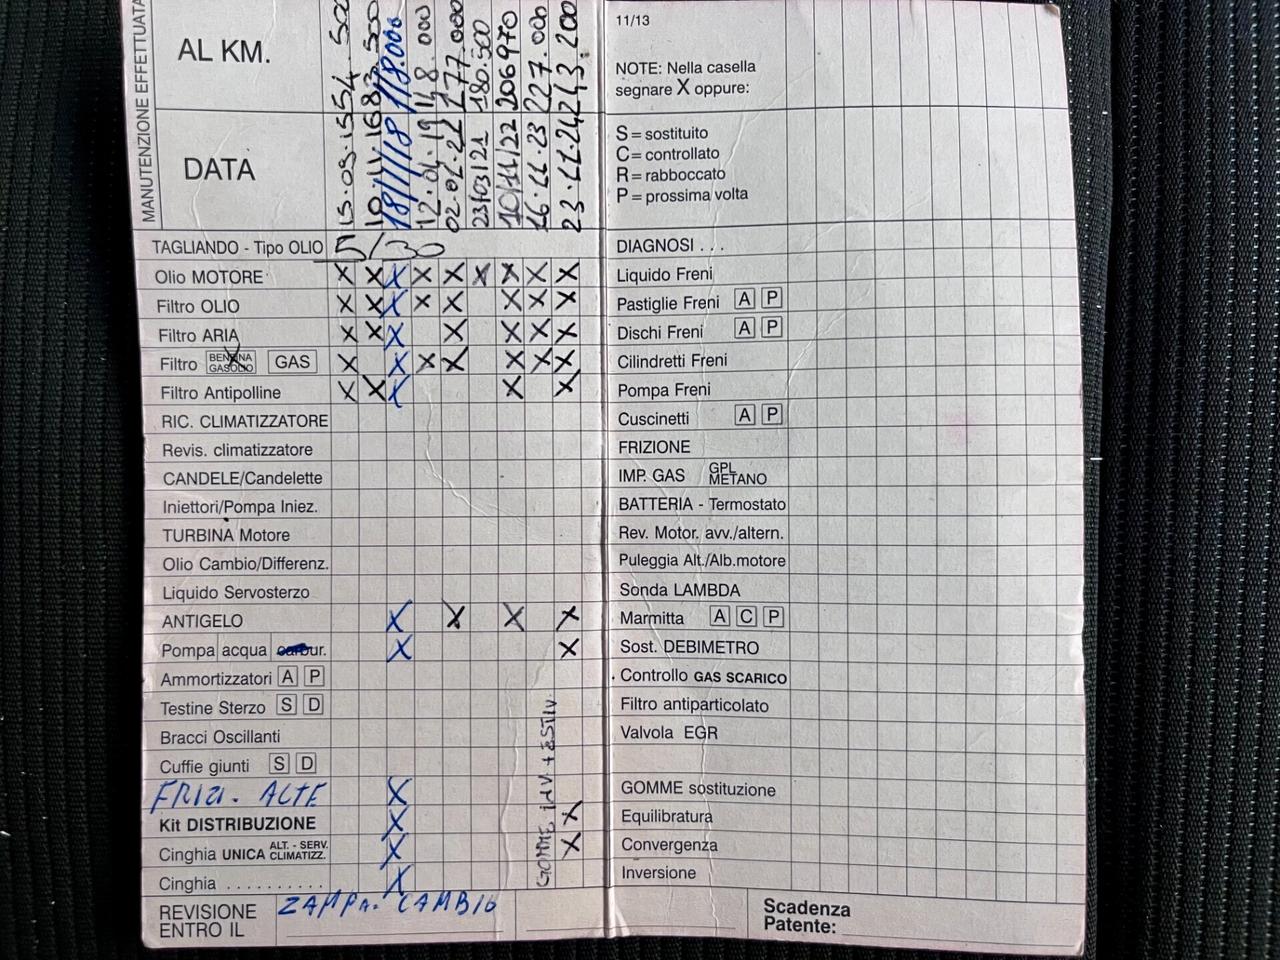 MANUTENZIONE EFFETTUATA
AL KM.
118.000
148.000
177.000
180.500
206970
227.000
243.200
DATA
15.09.15
10.11.16
18/1/18
12.04.19
23/03/21
10/11/22
16.11.23
23.11.24
TAGLIANDO - Tipo OLIO 5/30
Olio MOTORE X X X X X X X X X
Filtro OLIO X X X X X X X X
Filtro ARIA X X X X X X X
Filtro BENZINA GASOLIO GAS X X X X X X X
Filtro Antipolline X X X X X
RIC. CLIMATIZZATORE
Revis. climatizzatore
CANDELE/Candelette
Iniettori/Pompa Iniez.
TURBINA Motore
Olio Cambio/Differenz.
Liquido Servosterzo
ANTIGELO X X X X
Pompa acqua carbur. X X
Ammortizzatori A P
Testine Sterzo S D
Bracci Oscillanti
Cuffie giunti S D
FRIZI. ALTE X
Kit DISTRIBUZIONE X X
Cinghia UNICA ALT. - SERV. CLIMATIZZ. X X
Cinghia .......... X
GOMME INV. + ESTIV.
REVISIONE ENTRO IL
ZAMPA. CAMBIO
11/13
NOTE: Nella casella
segnare X oppure:
S = sostituito
C = controllato
R = rabboccato
P = prossima volta
DIAGNOSI . . .
Liquido Freni
Pastiglie Freni A P
Dischi Freni A P
Cilindretti Freni
Pompa Freni
Cuscinetti A P
FRIZIONE
IMP. GAS GPL METANO
BATTERIA - Termostato
Rev. Motor. avv./altern.
Puleggia Alt./Alb.motore
Sonda LAMBDA
Marmitta A C P
Sost. DEBIMETRO
Controllo GAS SCARICO
Filtro antiparticolato
Valvola EGR
GOMME sostituzione
Equilibratura
Convergenza
Inversione
Scadenza
Patente: